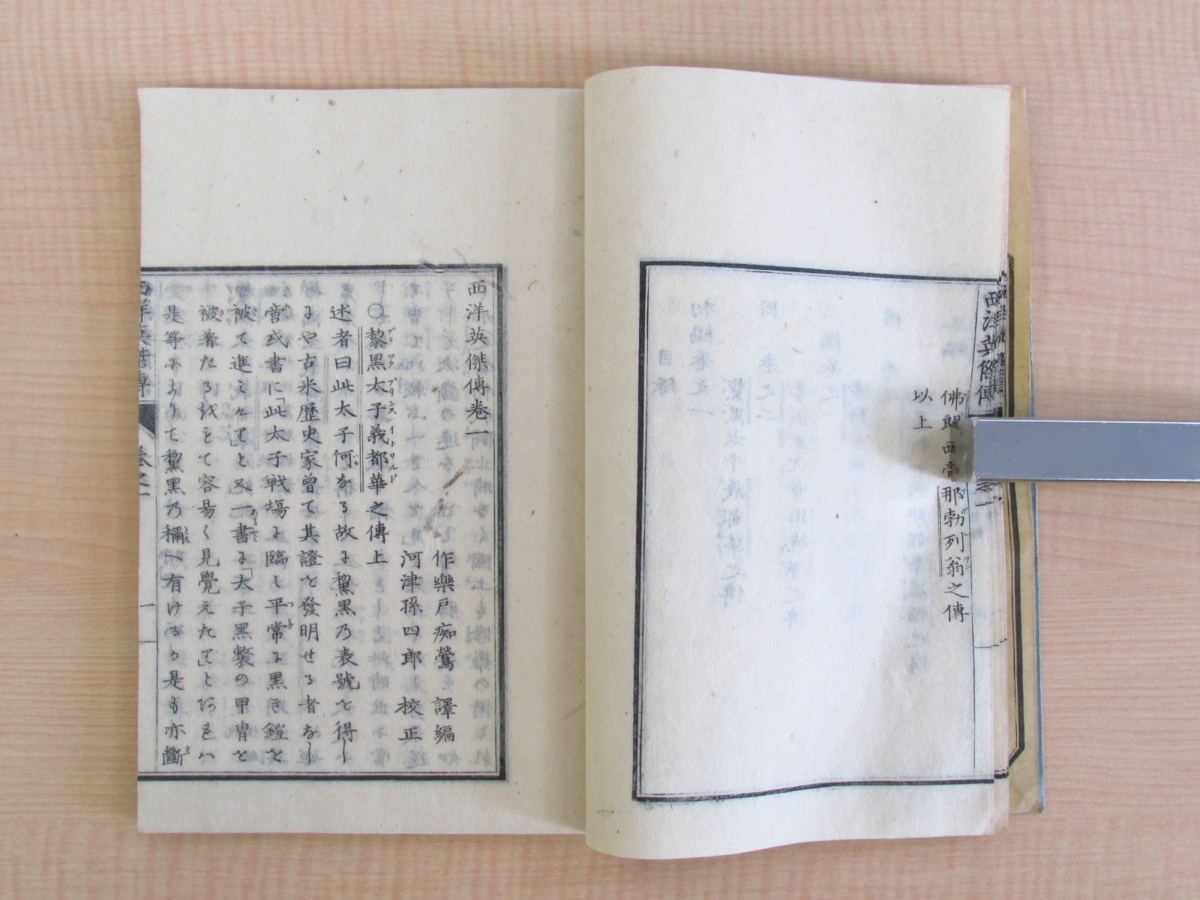 西洋英傑傳
佛朗西帝那勃列翁之傳
以上
西洋英傑傳卷一
作樂戸痴鶯 譯編
河津孫四郎 校正
○黎黑太子義都華之傳上
述者曰此太子何なる故に黎黑乃表號を得し
にや古来歴史家曾て其證を發明せる者なし
啻或書に「此太子戦場に臨し平常に黒き鎧を
被て進えんて」と又一書に「太子黑漿の甲冑を
被着たるをもて容易く見覺えたて」とあるハ
是等よりして黎黑乃稱有けるか是も亦斷
西洋英傑傳
卷之一